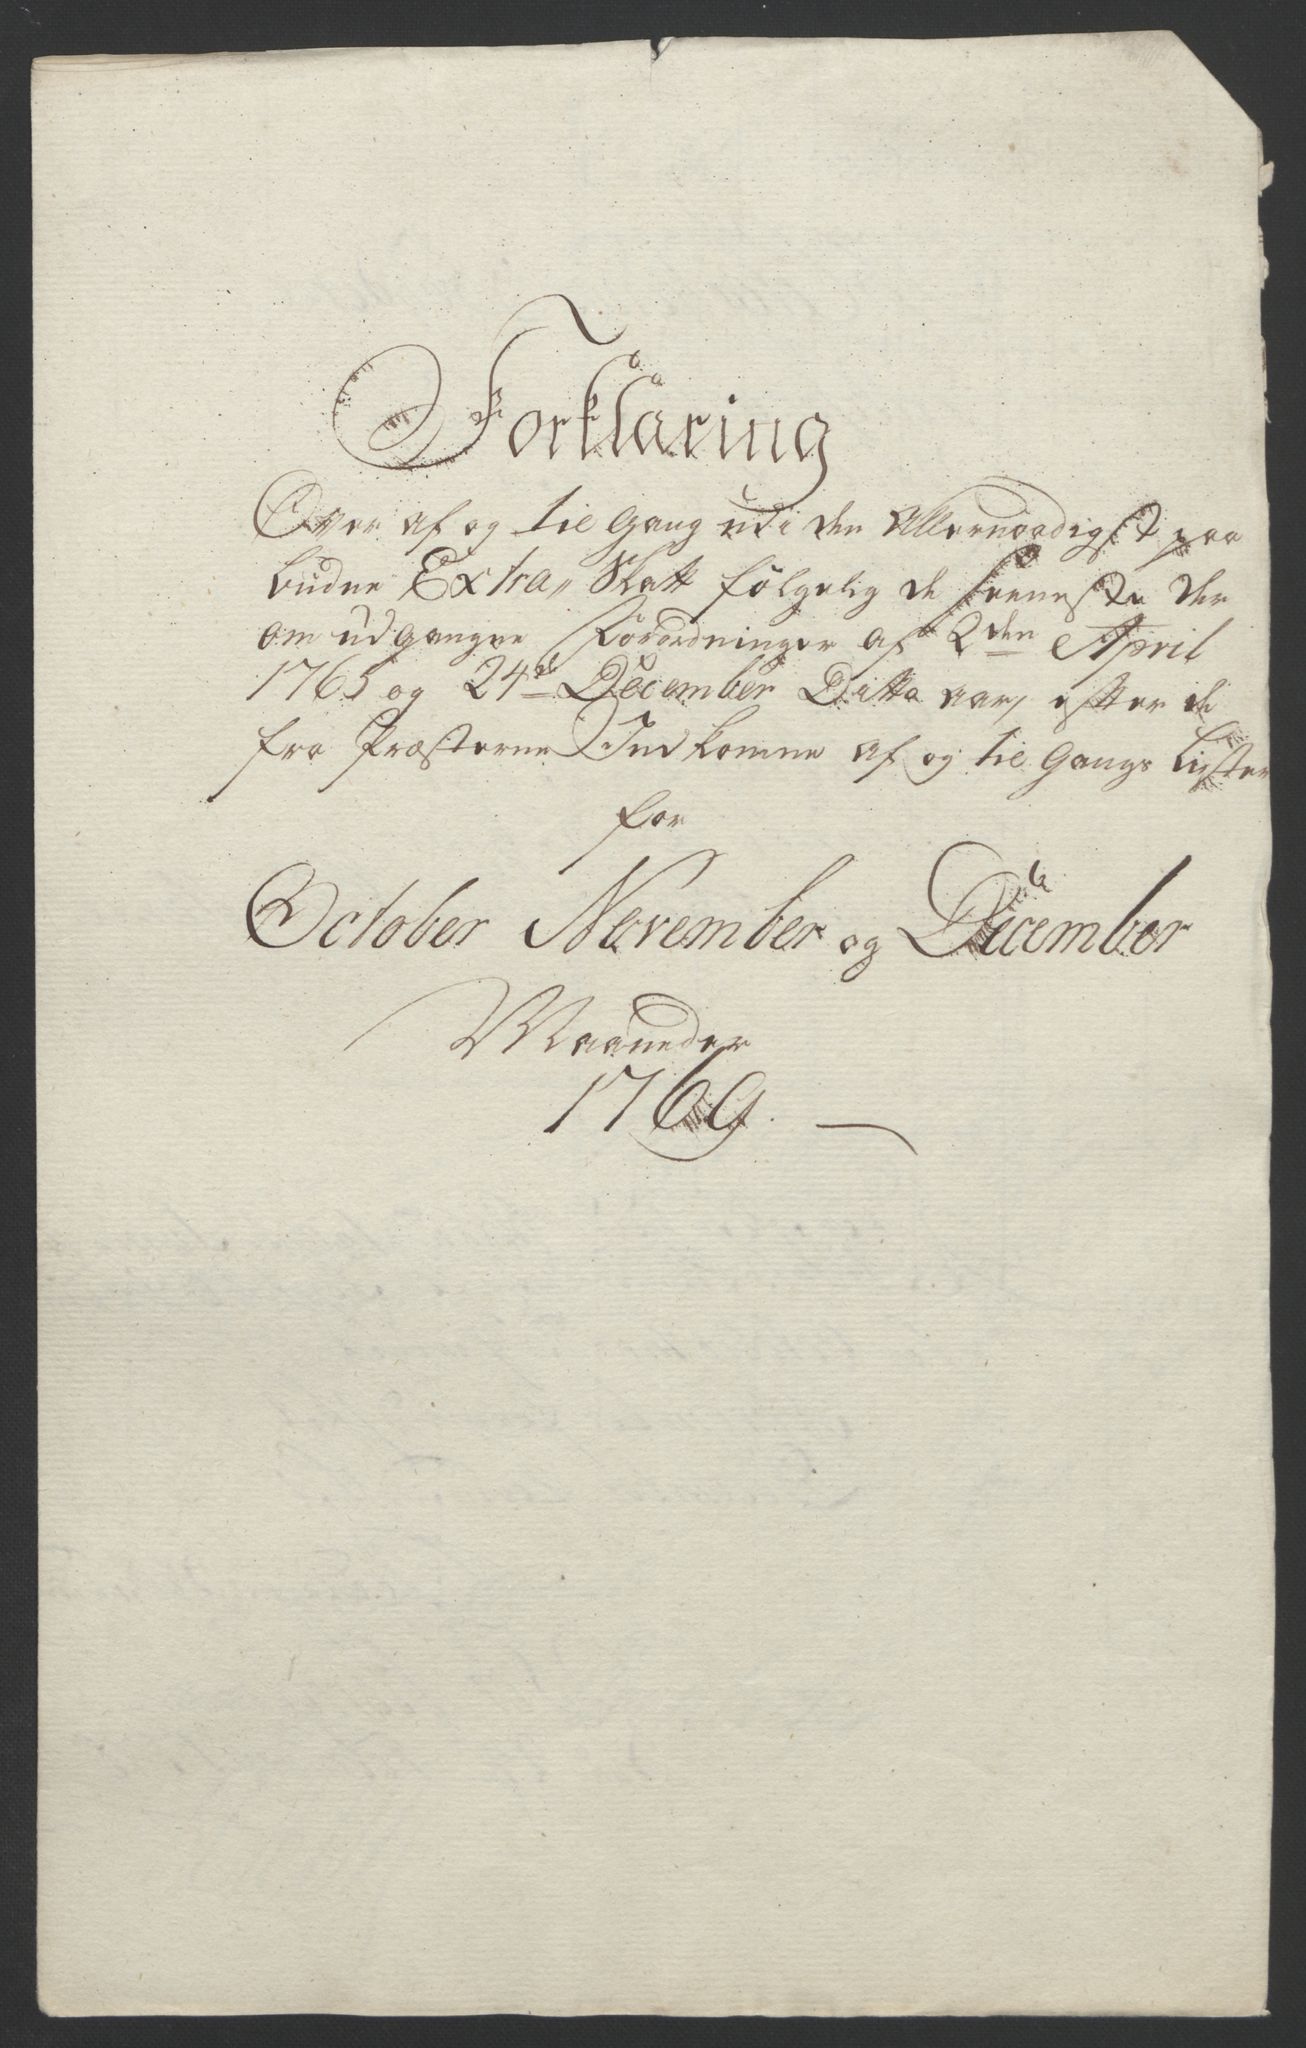 Forklaring
Over af og til Gang udi den Allernaadigst paa
budne Extra„ Skatt følgelig de seeneste der
om udgangne Forordninger af 2den April
1765 og 24de December Ditto aar, efter de
fra Præsterne Indkomne af og til Gangs Lister
for
October November og December
Maaneder
1769